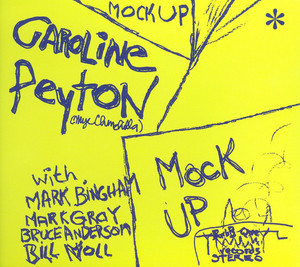 MOCK UP
CAROLINE
Peyton
with
MARK BINGHAM
MARK GRAY
BRUCE ANDERSON
BILL NOLL
MOCK
UP
records
STEREO